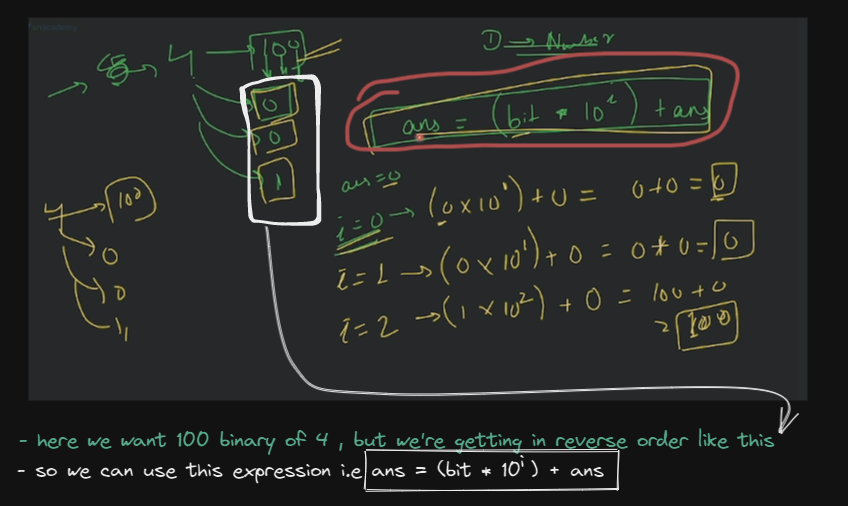 4 → 100
D → Number
0
0
1
ans = (bit * 10^i) + ans
ans = 0
i = 0 → (0 × 10^1) + 0 = 0+0 = 0
i = 1 → (0 × 10^1) + 0 = 0+0 = 0
i = 2 → (1 × 10^2) + 0 = 100 + 0
= 100
4 → 100
0
0
1
- here we want 100 binary of 4 , but we're getting in reverse order like this
- so we can use this expression i.e ans = (bit * 10^i ) + ans